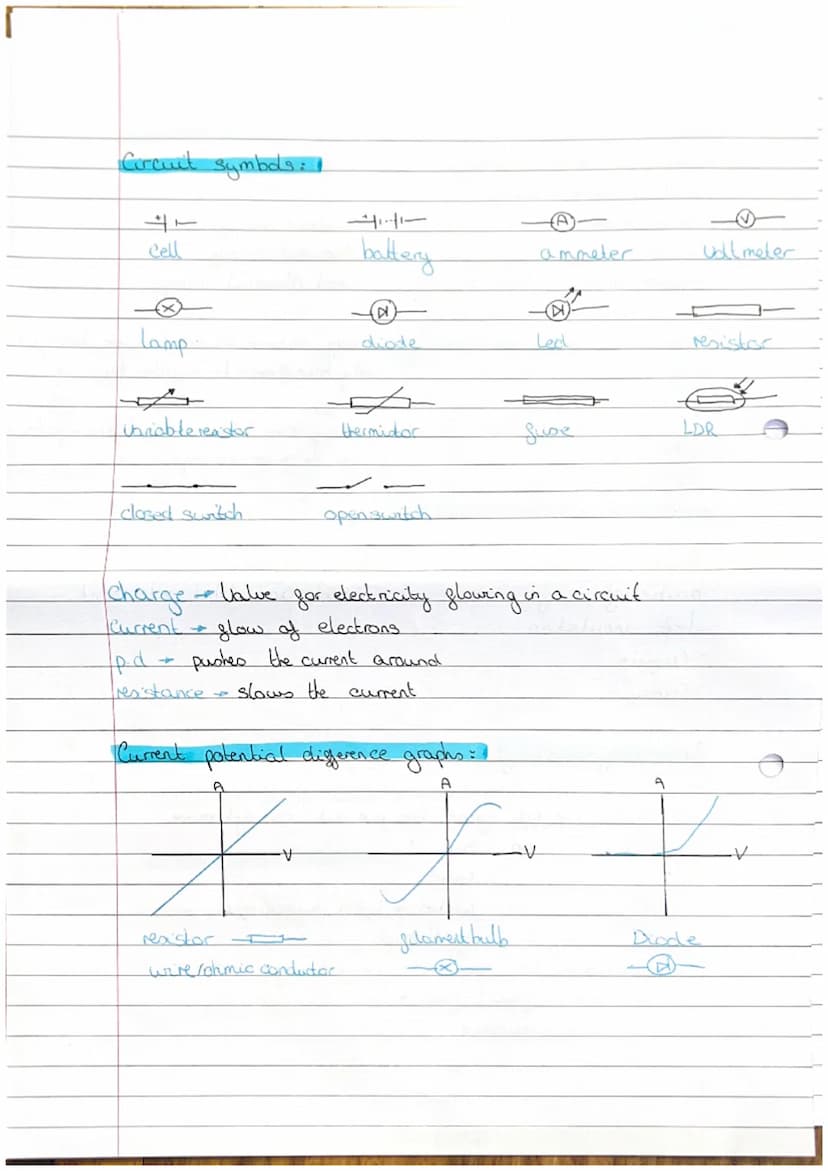 Circuit symbols:
A V
cell battery ammeter voltmeter
lamp diode Led resistor
variable resistor thermistor fuse LDR
closed switch open switch
charge → Value for electricity flowing in a circuit
Current → flow of electrons
p.d → pushes the current around
resistance → slows the current
Current potential difference graphs:
A A A
V V V
resistor filament bulb Diode
wire/ohmic conductor